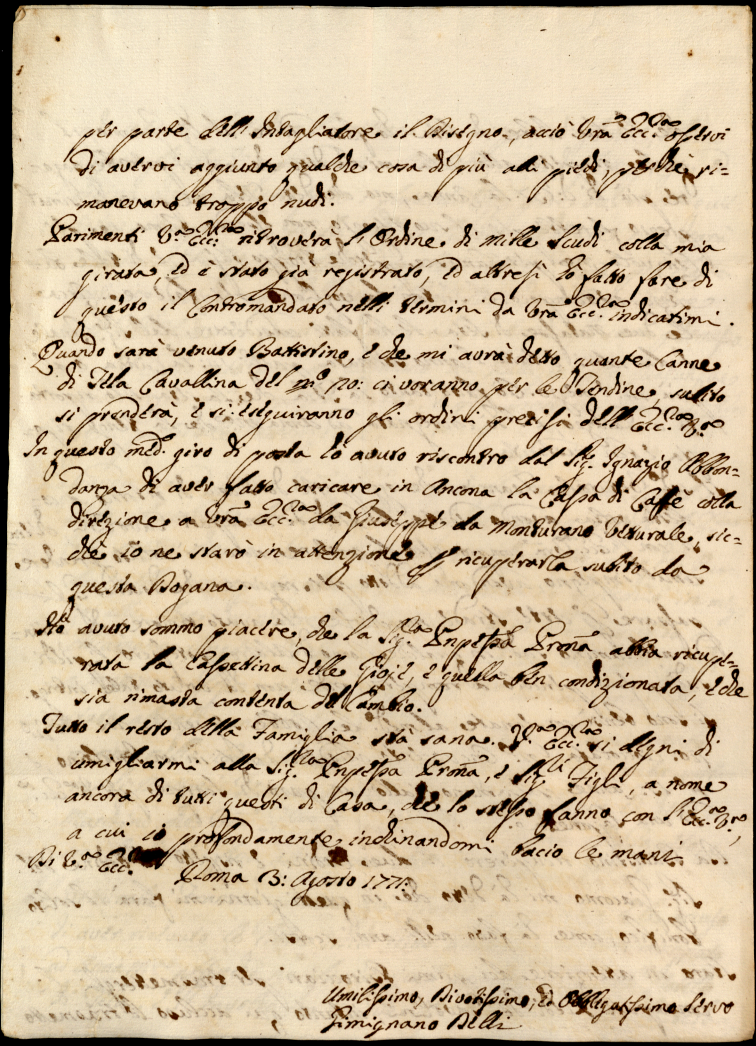 per parte dell'Intagliatore il Disegno, acciò Vrã Ecc.za osservi
di avervi aggiunto qualche cosa di più alli piedi, perche ri=
manevano troppo nudi.
Parimenti V.ra Ecc.za ritroverà l'Ordine di mille Scudi colla mia
girata, ed è stato già registrato, ed altresi hò fatto fare di
questo il Contromandato nelli termini da Vrã Ecc.za indicatimi.
Quando sarà venuto Battistino, e che mi avrà detto quante Canne
di Tela Cavallina del n.o 20: ci voranno per le Tendine, subito
si prenderà, e si eseguiranno gli ordini precisi dell'Ecc.za V.ra
In questo med.o giro di posta hò avuto riscontro dal Sig.r Ignazio Abbon=
danza di aver fatto caricare in Ancona la Cassa di Caffè colla
direzione a Vrã Ecc.za da Giuseppe da Monturano Vetturale, sic=
che io ne starò in attenzione p ricuperarla subito da
questa Dogana.
Hò avuto sommo piacere, che la Sig.ra Pnpessa Prõña abbia ricupe=
rata la Cassettina delle Gioje, e quella ben condizionata, e che
sia rimasta contenta del Cambio.
Tutto il resto della Famiglia stà sana. V.ra Ecc.za si degni di
umigliarmi alla Sig.ra Pnpessa Prõña, e Sig.ri Figli, a nome
ancora di tutti questi di Casa, che lo stesso fanno con l'Ecc.za V.ra,
a cui io profondamente inchinandomi bacio le mani
Di V.ra Ecc.za Roma 3: Agosto 1771.
Umilissimo, Divotissimo, ed Obbligatissimo Servo
Gimignano Belli